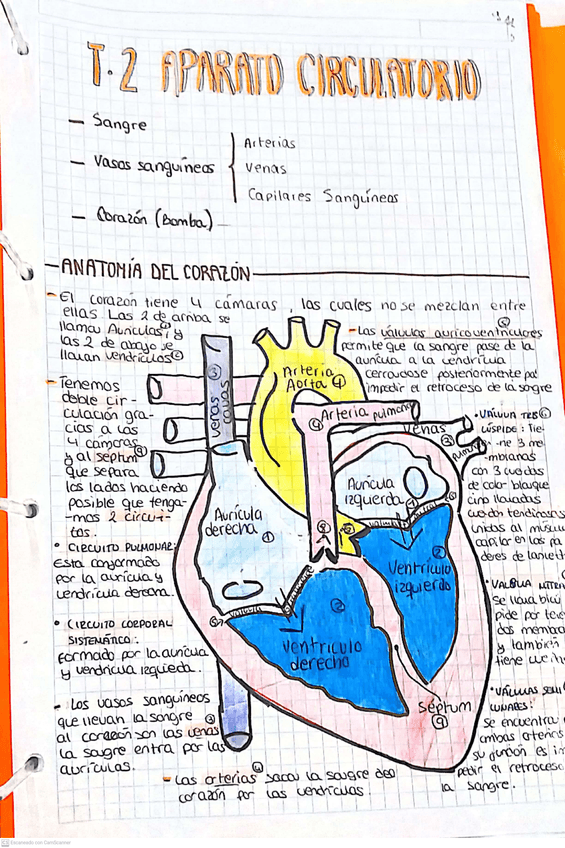 T.2 APARATO CIRCULATORIO
— Sangre
— Vasos sanguíneos
Arterias
Venas
Capilares Sanguíneos
— Corazón (Bomba)
— ANATOMÍA DEL CORAZÓN
- El corazón tiene 4 cámaras, las cuales no se mezclan entre
ellas. Las 2 de arriba se
llaman Aurículas ① y
las 2 de abajo se
llaman ventrículos ②
- Tenemos
doble cir-
culación gra-
cias a las
4 cámaras
y al septum ⑨
que separa
los lados haciendo
posible que tenga-
mos 2 circui-
tos.
• CIRCUITO PULMONAR:
Esta conformado
por la aurícula y
ventrícula derecha.
• CIRCUITO CORPORAL
SISTEMÁTICO:
Formado por la aurícula
y ventrícula izquierda.
- Los vasos sanguíneos
que llevan la sangre ③
al corazón son las venas
la sangre entra por las
aurículas.
- Las arterias sacan la sangre del
④
corazón por las ventrículas.
- Las válvulas auriculoventriculares
permite que la sangre pase de la
aurícula a la ventrícula
cerrandose posteriormente para
impedir el retroceso de la sangre
• VÁLVULA TRI ⑥
CÚSPIDE: Tie-
-ne 3 me
mbranas
con 3 cuerdas
de color blanque
cino llamadas
cuerdas tendinosas
unidas al múscu
papilar en las pa
deres de la
• VALBULA MITRAL
Se llama bicú
pide por tene
dos membra
y también
tiene
• VÁLVULAS SEMI
LUNARES:
se encuentra
ambas arterias
su función es im
pedir el retroceso
la sangre.
venas
cavas
③
Arteria
Aorta ④
④ Arteria pulmonar
venas
③
pulmonar
Aurícula
derecha ①
Aurícula
izquierda ①
Ventrículo
izquierdo
②
②
Ventrículo
derecho
Septum
⑨
Escaneado con CamScanner